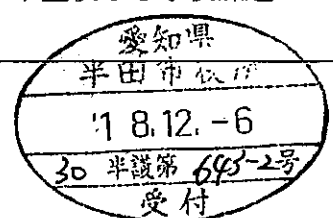 愛知県
半田市
'18.12.-6
30 半議第 643-2号
受付